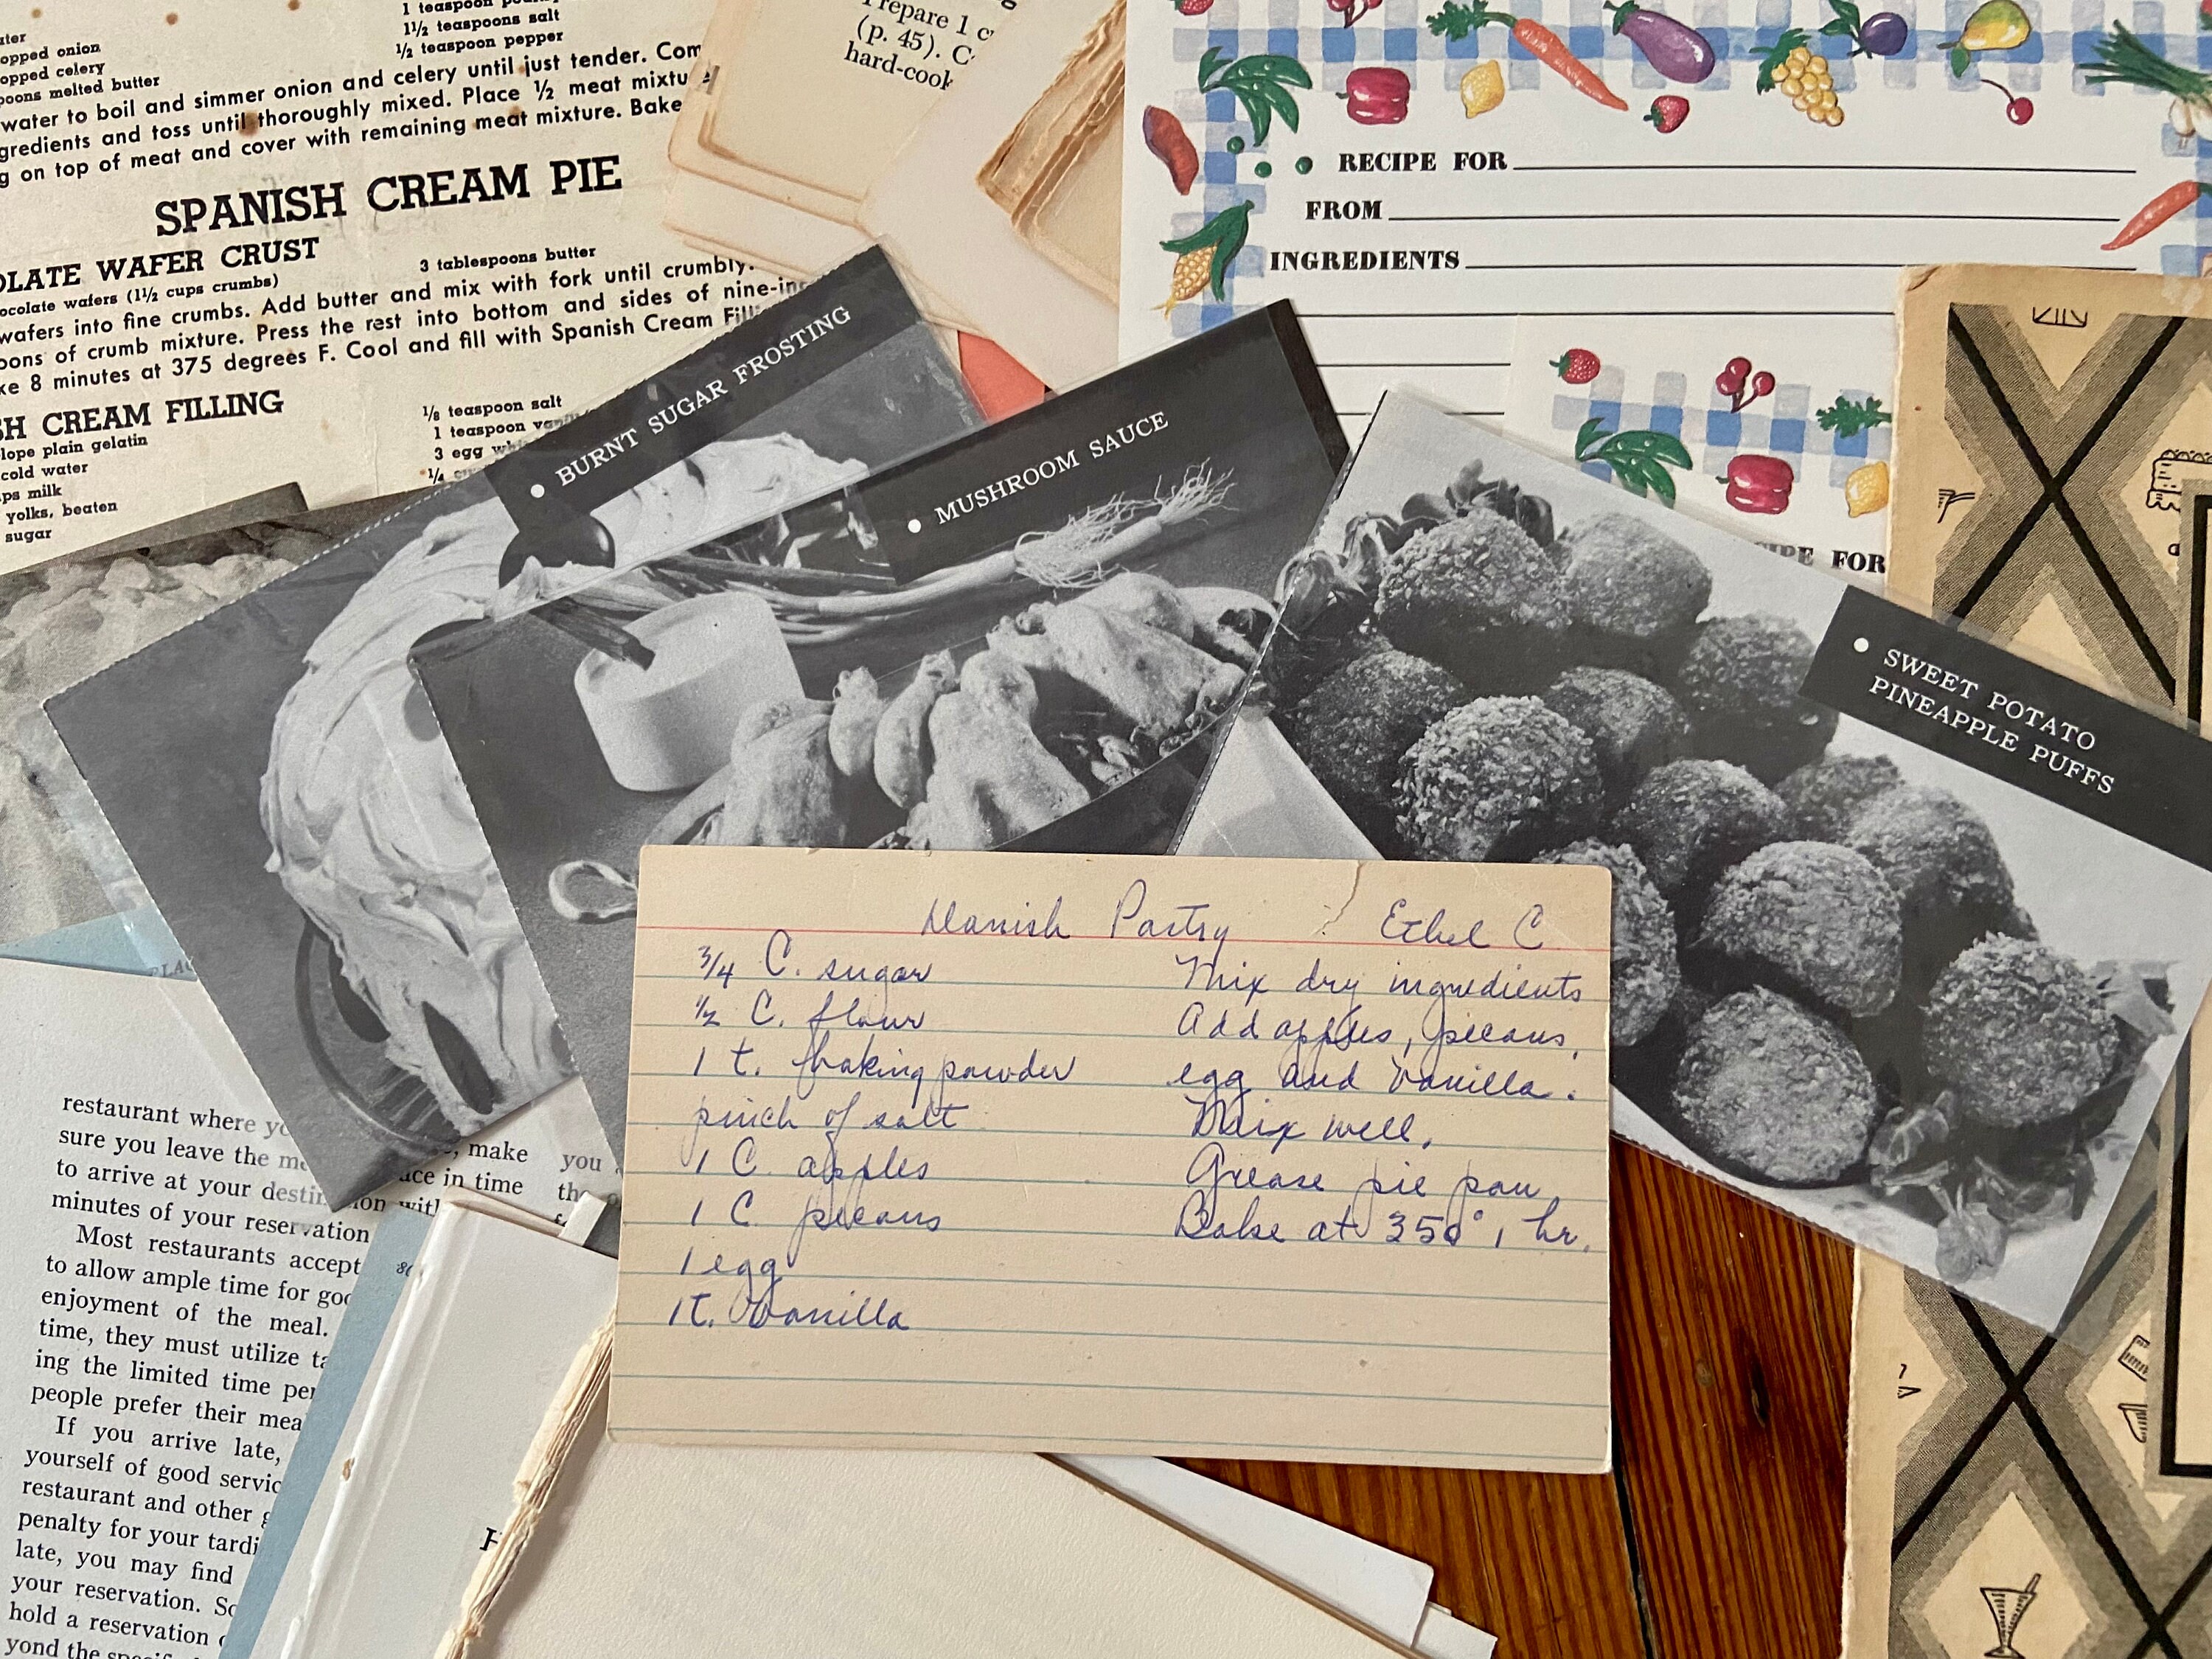 1 teaspoon
1½ teaspoons salt
½ teaspoon pepper
opped onion
opped celery
poons melted butter
water to boil and simmer onion and celery until just tender. Com
gredients and toss until thoroughly mixed. Place ½ meat mixtu
g on top of meat and cover with remaining meat mixture. Bake
SPANISH CREAM PIE
OLATE WAFER CRUST
3 tablespoons butter
ocolate wafers (1½ cups crumbs)
wafers into fine crumbs. Add butter and mix with fork until crumbly.
oons of crumb mixture. Press the rest into bottom and sides of nine-in
ke 8 minutes at 375 degrees F. Cool and fill with Spanish Cream Fill
SH CREAM FILLING
lope plain gelatin
cold water
ps milk
yolks, beaten
sugar
⅛ teaspoon salt
1 teaspoon van
3 egg wh
¼
Prepare 1 c
(p. 45). C
hard-cook
RECIPE FOR
FROM
INGREDIENTS
CIPE FOR
• BURNT SUGAR FROSTING
• MUSHROOM SAUCE
• SWEET POTATO
PINEAPPLE PUFFS
Danish Pastry Ethel C
¾ C. sugar
½ C. flour
1 t. baking powder
pinch of salt
1 C. apples
1 C pecans
1 egg
1 t. vanilla
Mix dry ingredients
Add apples, pecans,
egg and vanilla.
Mix well.
Grease pie pan
Bake at 350° 1 hr.
restaurant where yo
sure you leave the me , make
to arrive at your destin ace in time
minutes of your reservation
Most restaurants accept
to allow ample time for goo
enjoyment of the meal.
time, they must utilize ta
ing the limited time per
people prefer their mea
If you arrive late,
yourself of good servic
restaurant and other g
penalty for your tardi
late, you may find
your reservation. So
hold a reservation
yond the
you
H